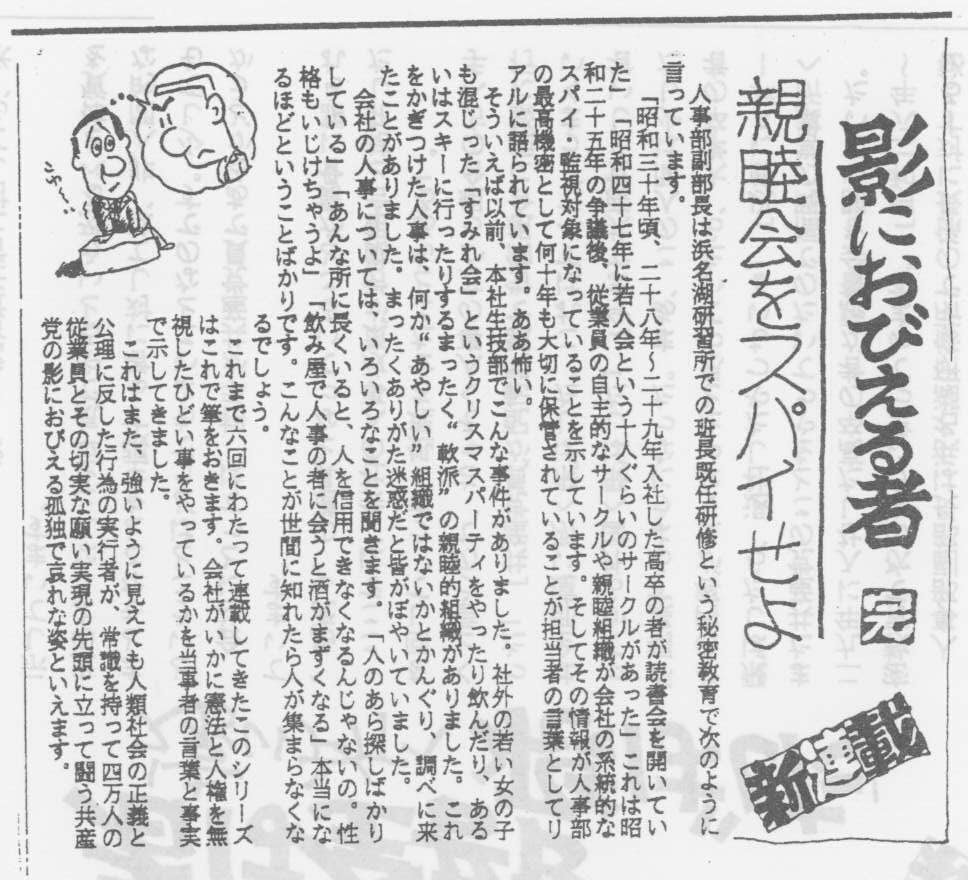 影におびえる者 完
新連載
親睦会をスパイせよ
人事部副部長は浜名湖研習所での班長既任研修という秘密教育で次のように
言っています。
「昭和三十年頃、二十八年〜二十九年入社した高卒の者が読書会を開いてい
た」「昭和四十七年に若人会という十人ぐらいのサークルがあった」これは昭
和二十五年の争議後、従業員の自主的なサークルや親睦組織が会社の系統的な
スパイ、監視対象になっていることを示しています。そしてその情報が人事部
の最高機密として何十年も大切に保管されていることが担当者の言葉としてリ
アルに語られています。ああ怖い。
そういえば以前、本社生技部でこんな事件がありました。社外の若い女の子
も混じった「すみれ会」というクリスマスパーティをやったり飲んだり、ある
いはスキーに行ったりするまったく“軟派”の親睦的組織がありました。これ
をかぎつけた人事は、何か“あやしい”組織ではないかとかんぐり、調べに来
たことがありました。まったくありがた迷惑だと皆がぼやいていました。
会社の人事については、いろいろなことを聞きます。「人のあら探しばかり
している」「あんな所に長くいると、人を信用できなくなるんじゃないの。性
格もいじけちゃうよ」「飲み屋で人事の者に会うと酒がまずくなる」本当にな
るほどということばかりです。こんなことが世間に知れたら人が集まらなくな
るでしょう。
これまで六回にわたって連載してきたこのシリーズ
はこれで筆をおきます。会社がいかに憲法と人権を無
視したひどい事をやっているかを当事者の言葉と事実
で示してきました。
これはまた、強いように見えても人類社会の正義と
公理に反した行為の実行者が、常識を持って四万人の
従業員とその切実な願い実現の先頭に立って闘う共産
党の影におびえる孤独で哀れな姿といえます。